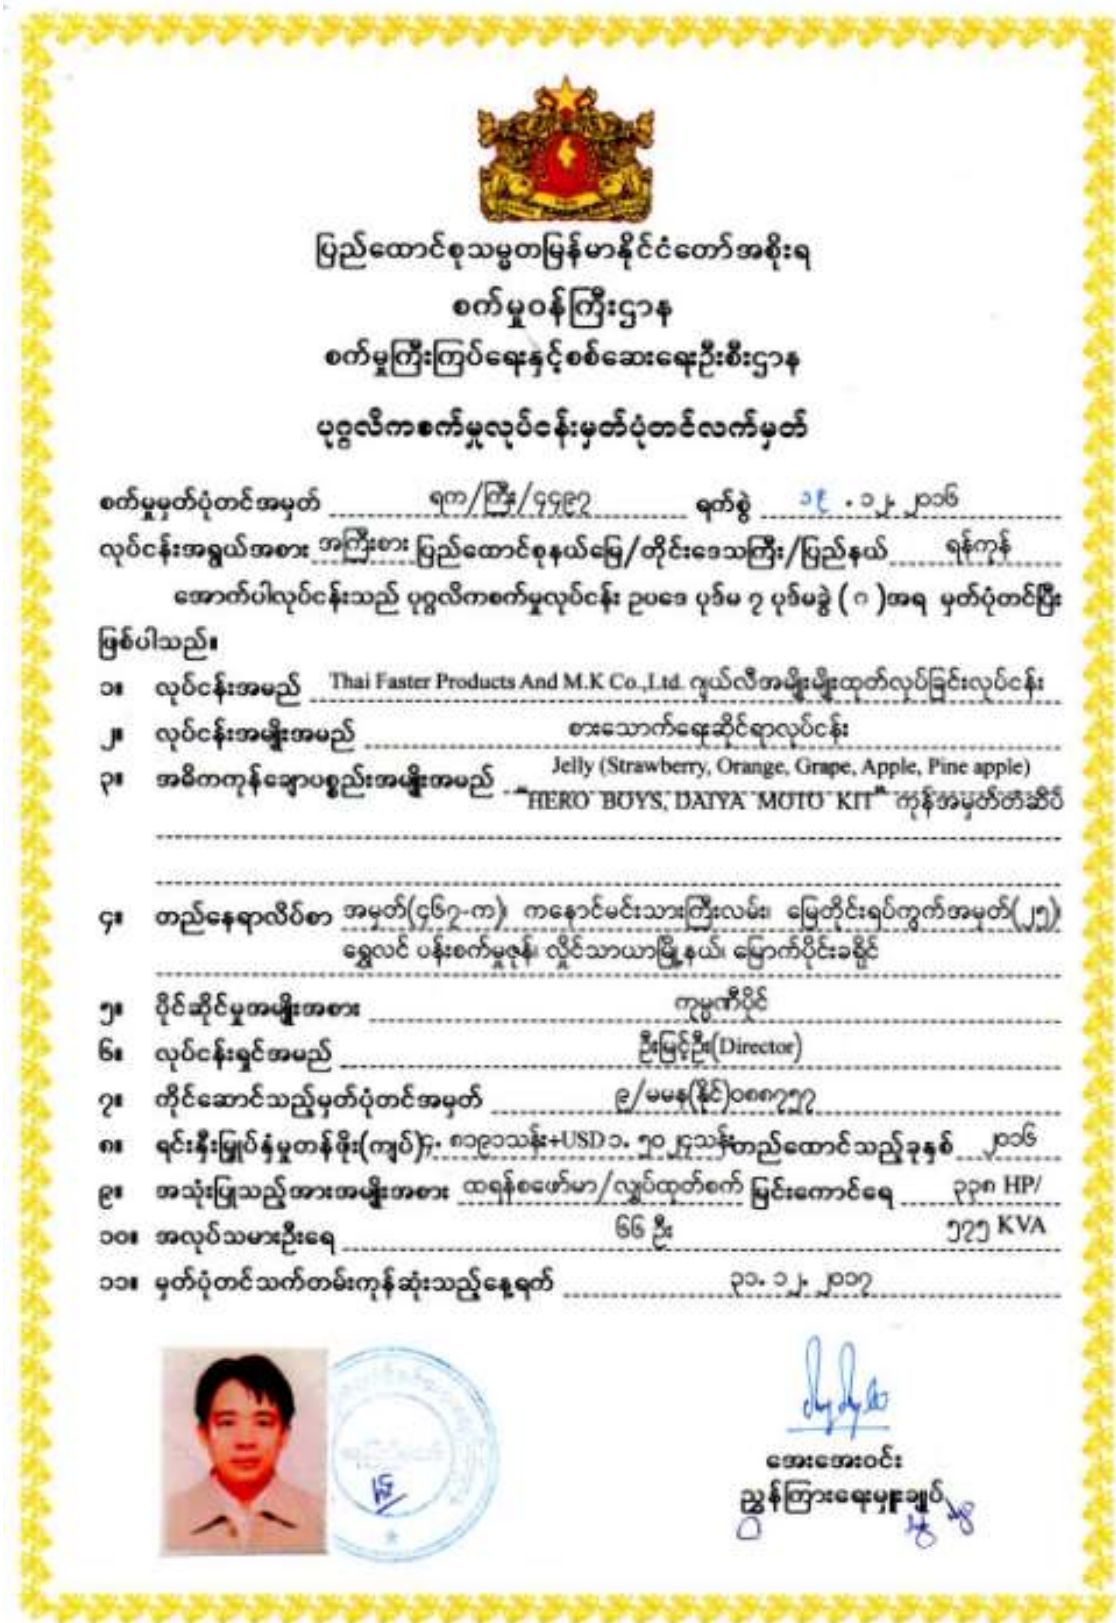 ပြည်ထောင်စုသမ္မတမြန်မာနိုင်ငံတော်အစိုးရ
စက်မှုဝန်ကြီးဌာန
စက်မှုကြီးကြပ်ရေးနှင့်စစ်ဆေးရေးဦးစီးဌာန
ပုဂ္ဂလိကစက်မှုလုပ်ငန်းမှတ်ပုံတင်လက်မှတ်
စက်မှုမှတ်ပုံတင်အမှတ် ရက/ကြီး/၄၄၉၇ ရက်စွဲ ၁၉.၁၂.၂၀၁၆
လုပ်ငန်းအရွယ်အစား အကြီးစား ပြည်ထောင်စုနယ်မြေ/တိုင်းဒေသကြီး/ပြည်နယ် ရန်ကုန်
အောက်ပါလုပ်ငန်းသည် ပုဂ္ဂလိကစက်မှုလုပ်ငန်း ဥပဒေ ပုဒ်မ ၇ ပုဒ်မခွဲ ( ဂ )အရ မှတ်ပုံတင်ပြီး
ဖြစ်ပါသည်။
၁။ လုပ်ငန်းအမည် Thai Faster Products And M.K Co.,Ltd. ဂျယ်လီအမျိုးမျိုးထုတ်လုပ်ခြင်းလုပ်ငန်း
၂။ လုပ်ငန်းအမျိုးအမည် စားသောက်ရေးဆိုင်ရာလုပ်ငန်း
၃။ အဓိကကုန်ချောပစ္စည်းအမျိုးအမည် Jelly (Strawberry, Orange, Grape, Apple, Pine apple)
"HERO BOYS, DAIYA MOTO KIT" ကုန်အမှတ်တံဆိပ်
၄။ တည်နေရာလိပ်စာ အမှတ်(၄၆၇-က)၊ ကနောင်မင်းသားကြီးလမ်း၊ မြေတိုင်းရပ်ကွက်အမှတ်(၂၅)၊
ရွှေလင် ပန်းစက်မှုဇုန်၊ လှိုင်သာယာမြို့နယ်၊ မြောက်ပိုင်းခရိုင်
၅။ ပိုင်ဆိုင်မှုအမျိုးအစား ကုမ္ပဏီပိုင်
၆။ လုပ်ငန်းရှင်အမည် ဦးမြင့်ဦး(Director)
၇။ ကိုင်ဆောင်သည့်မှတ်ပုံတင်အမှတ် ၉/မမန(နိုင်)၀၈၈၇၅၇
၈။ ရင်းနှီးမြှုပ်နှံမှုတန်ဖိုး(ကျပ်)၄.၈၁၉၁သန်း+USD ၁.၅၀၂၄သန်းတည်ထောင်သည့်ခုနှစ် ၂၀၁၆
၉။ အသုံးပြုသည့်အားအမျိုးအစား ထရန်စဖော်မာ/လျှပ်ထုတ်စက် မြင်းကောင်ရေ ၃၃၈ HP/
၁၀။ အလုပ်သမားဦးရေ ၆၆ ဦး ၅၇၅ KVA
၁၁။ မှတ်ပုံတင်သက်တမ်းကုန်ဆုံးသည့်နေ့ရက် ၃၁.၁၂.၂၀၁၇
အေးအေးဝင်း
ညွှန်ကြားရေးမှူးချုပ်